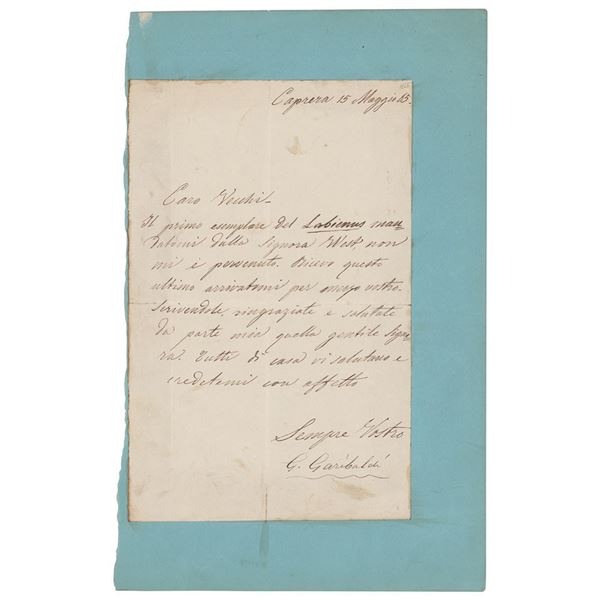 Caprera 15 Maggio 65.
Caro Vecchi_
Il primo esemplare del Labienus man=
datomi dalla Signora West, non
mi è pervenuto. Ricevo questo
ultimo arrivatomi per mezzo vostro.
Scrivendole, ringraziate e salutate
da parte mia quella gentile Signo=
ra. Tutti di casa vi salutano e
credetemi con affetto
Sempre Vostro
G. Garibaldi